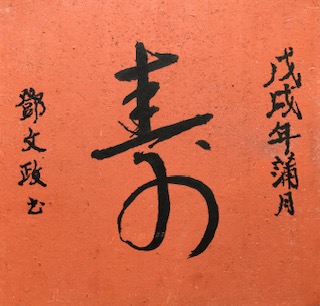 戊戌年蒲月
寿
鄧文政书